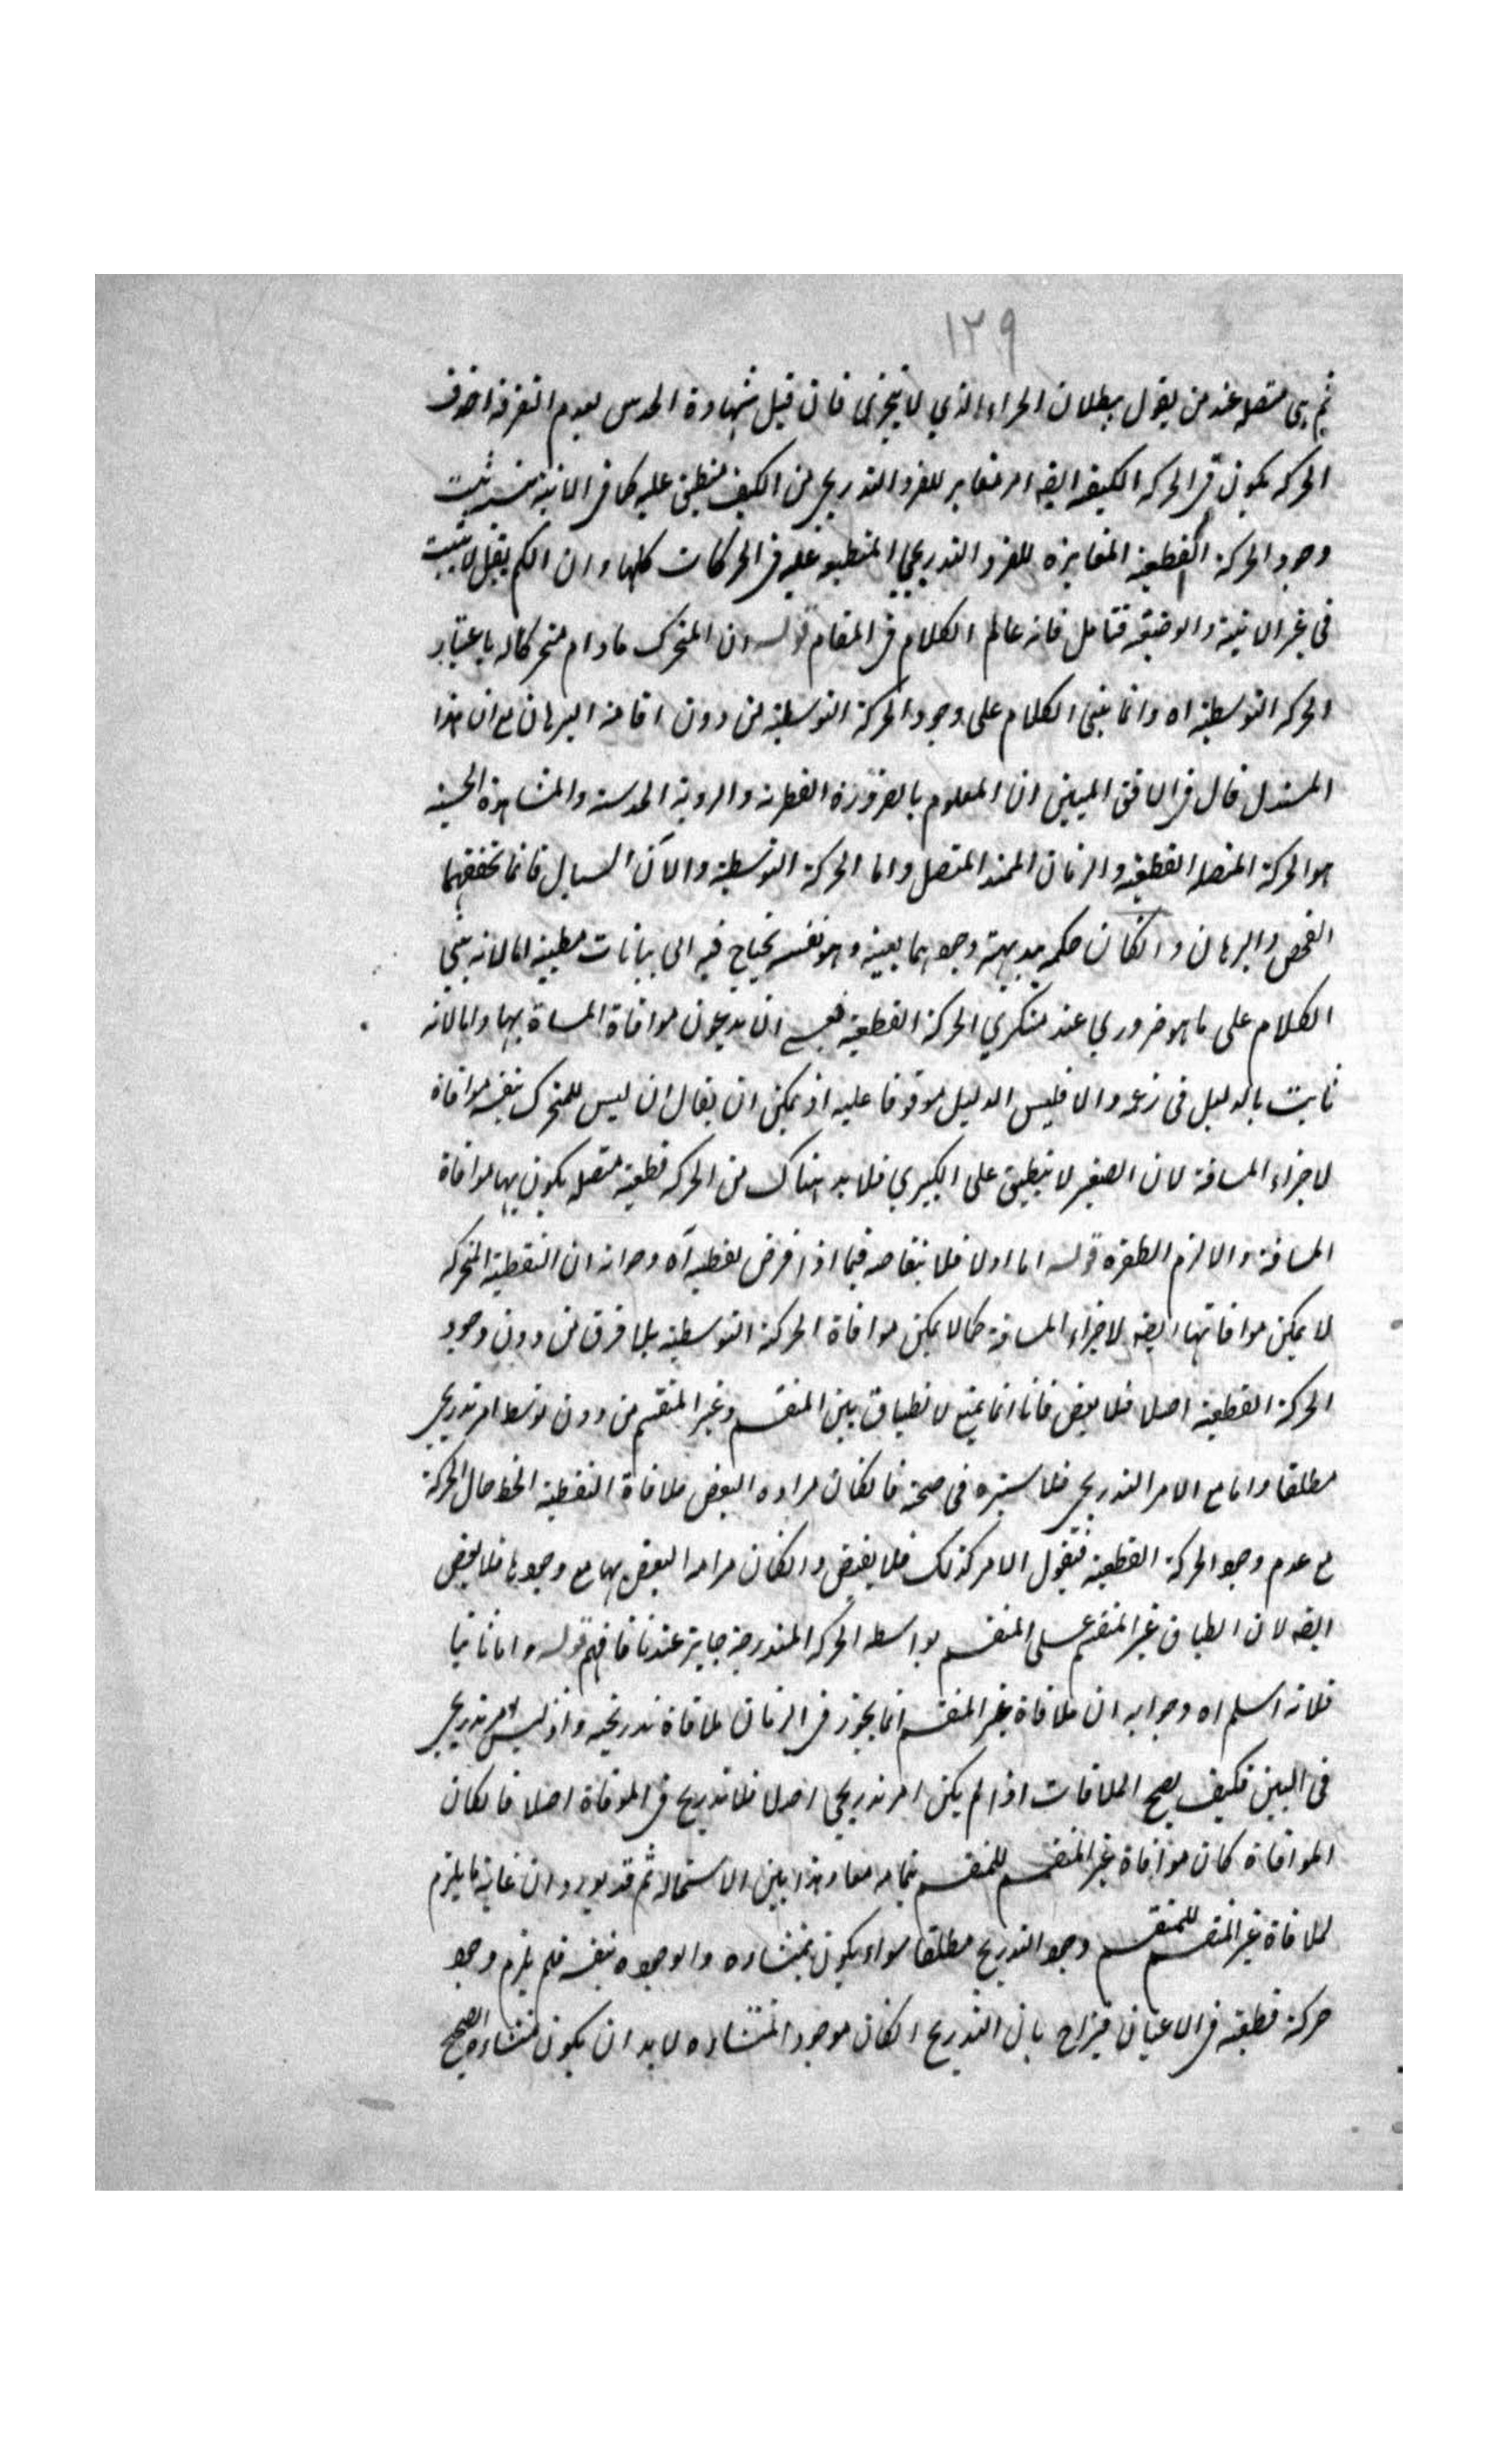 ١٢٩
ثم هى متصلة عند من يقول ببطلان الجزء الذي لا يتجزى فان قيل شهادة الحدس بعدم التفرقة
الحركة يكون فى الحركة الكيفية ايضا امر مغاير للفرد التدريجى من الكيف منطبق عليه كما فى الاينية
وجود الحركة القطعية المغايرة للفرد التدريجي المنطبق عليه فى الحركات كلها وان لم يقبل لا يثبت
فى غير الاينية والوضعية فتامل فانه عالم الكلام فى المقام قوله ان المتحرك ما دام متحركا له باعتبار
الحركة التوسطية اه وانما بنى الكلام على وجود الحركة التوسطية من دون اقامة البرهان مع ان هذا
المستدل قال فى الافق المبين ان المعلوم بالضرورة الفطرية والروية الحدسية والمشاهدة الحسية
هو الحركة المتصلة القطعية والزمان الممتد المتصل واما الحركة التوسطية والآن السيال فانما تحققهما
الفحص والبرهان وانكان حكم بديهية وجودهما بعينه وهو نفسه يحتاج فيه الى بيانات اما لانه بنى
الكلام على ما هو ضروري عند منكري الحركة القطعية ان يدعون موافاة المسافة بها واما لانه
ثابت بالدليل فى زعمه والا فليس الدليل موقوفا عليه اذ يمكن ان يقال ان ليس للمتحرك بنفسه موافاة
لاجزاء المسافة لان الصغير لا ينطبق على الكبيري فلا بد هناك من الحركة قطعية متصلة يكون بها موافاة
المسافة والا لزم الطفرة قوله اما اولا فلانتقاضه فيما اذا فرض نقطة آه وجوابه ان النقطية المتحركة
لا يمكن موافاتها ايضا لاجزاء المسافة كما لا يمكن موافاة الحركة التوسطية بلا فرق من دون وجود
الحركة القطعية اصلا فلا نقض فانا انما نمنع لانطباق بين المنقسم وغير المنقسم من دون توسط امر تدريجى
مطلقا واما مع الامر التدريجى فلا سترة فى صحته فانكان مراده النقض ملاقاة النقطية الخط حال الحركة
مع عدم وجود الحركة القطعية فنقول الامر كذلك فلا نقض وانكان مرامه النقض بها مع وجودها فلا نقض
ايضا لان انطباق غير المنقسم على المنقسم بواسطة الحركة المتدرجة جايز عندنا فافهم قوله واما ثانيا
فلانه اسلم اه وجوابه ان ملاقاة غير المنقسم انما يجوز فى الزمان ملاقاة تدريجية واذ ليس امر تدريجى
فى البين فكيف يصح الملاقات اذا لم يكن امر تدريجي اصلا فلا تدريج فى الموافاة اصلا فانكان
الموافاة كان موافاة غير المنقسم للمنقسم بتمامه معا وهذا بين الاستحالة ثم قد يورد ان غاية ما يلزم
لملاقاة غير المنقسم للمنقسم وجود التدريج مطلقا سواء يكون بمنشاءه والوجوده بنفسه فلم يلزم وجود
حركة قطعية فى الاعيان فيزاح بان التدريج انكان موجود المنشاءه لا بد ان يكون منشاءه